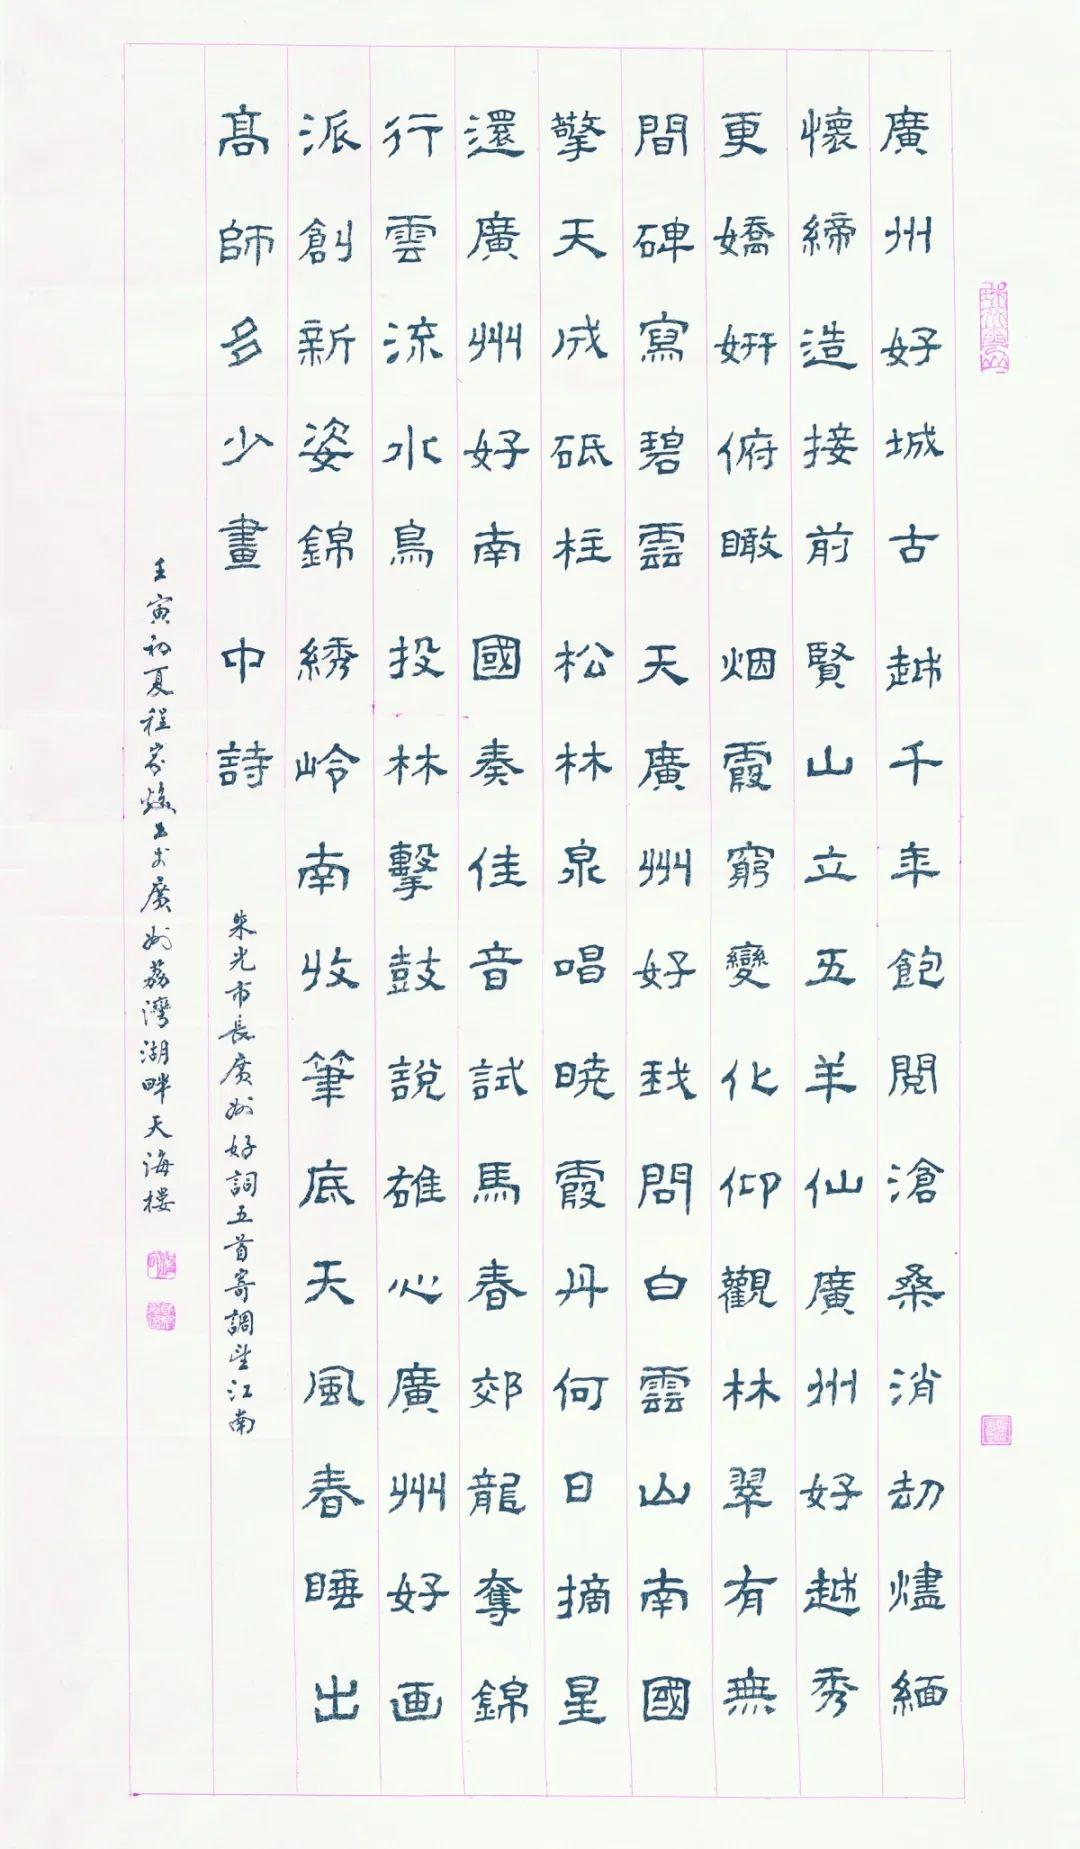 廣州好城古越千年飽閱滄桑消劫燼緬
懷締造接前賢山立五羊仙廣州好越秀
更嬌妍俯瞰烟霞窮變化仰觀林翠有無
間碑寫碧雲天廣州好我問白雲山南國
擎天成砥柱松林泉唱曉霞丹何日摘星
還廣州好南國奏佳音試馬春郊龍奪錦
行雲流水鳥投林擊鼓說雄心廣州好画
派創新姿錦綉岭南收筆底天風春睡出
髙師多少畫中詩
朱光市長廣州好詞五首寄調望江南
壬寅初夏程家焕书于廣州荔灣湖畔天海樓